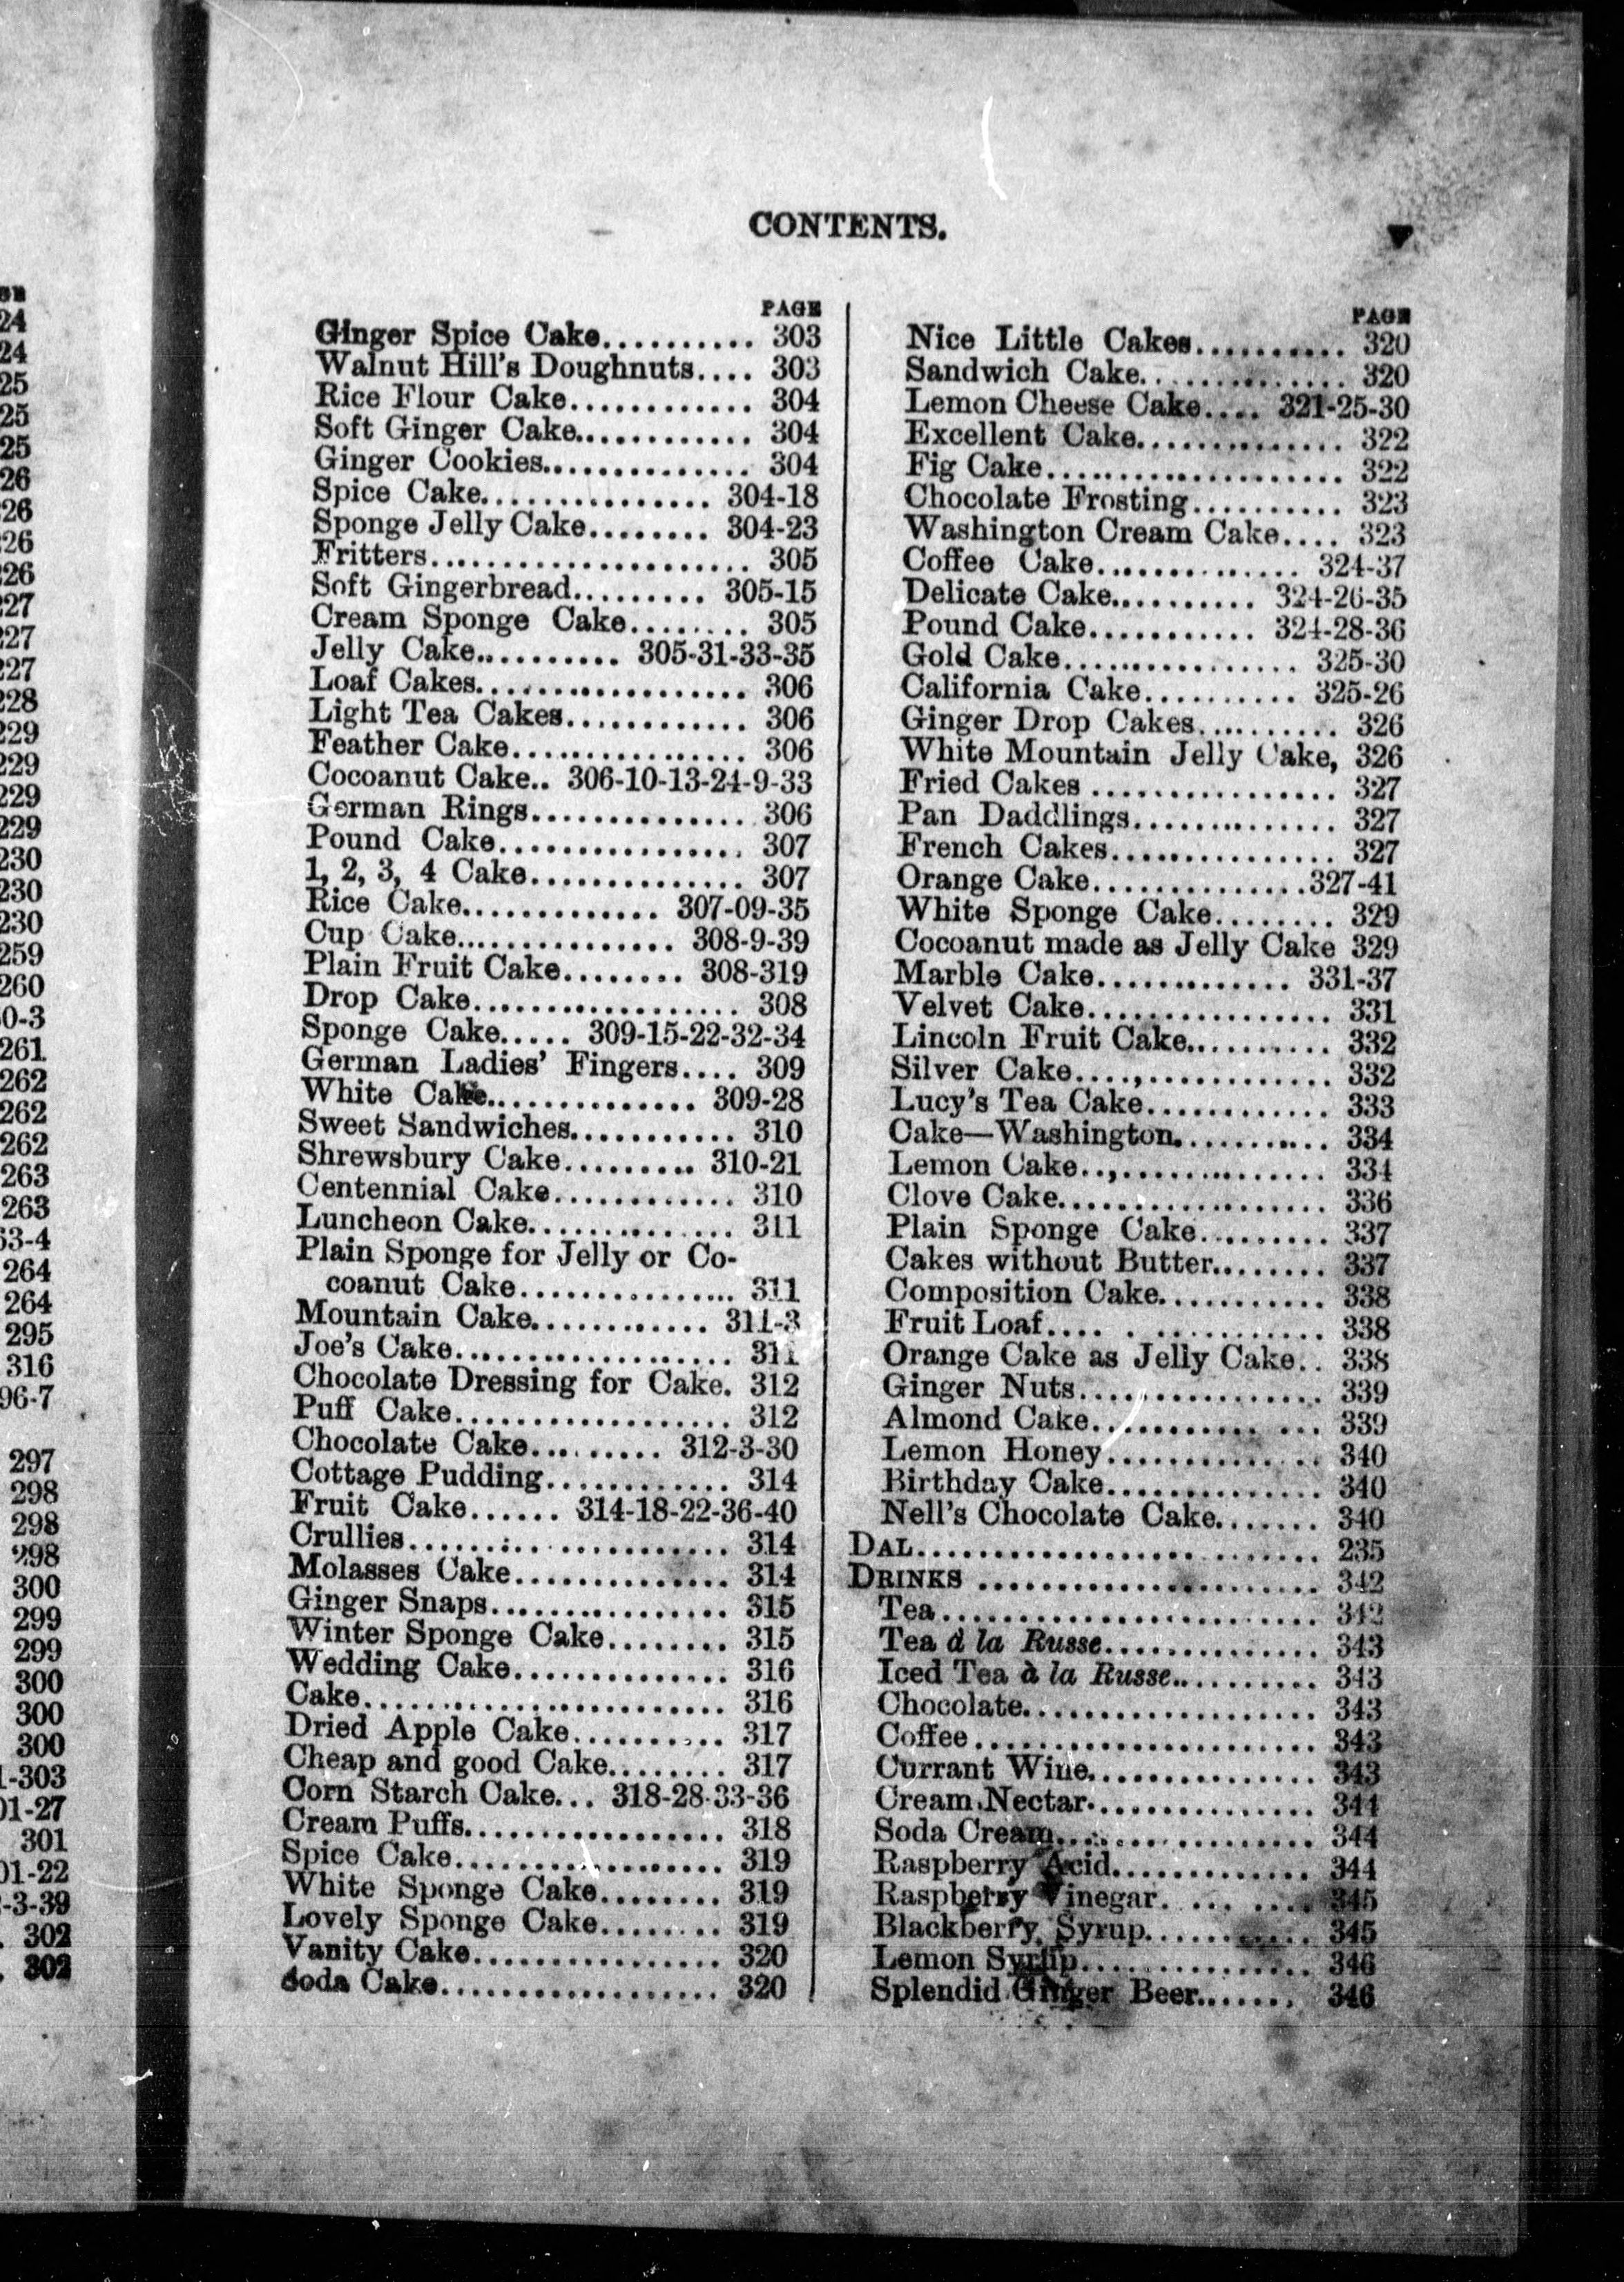 CONTENTS.
V
PAGE
Ginger Spice Cake.......... 303
Walnut Hill's Doughnuts.... 303
Rice Flour Cake............ 304
Soft Ginger Cake............ 304
Ginger Cookies.............. 304
Spice Cake............... 304-18
Sponge Jelly Cake........ 304-23
Fritters..................... 305
Soft Gingerbread......... 305-15
Cream Sponge Cake........ 305
Jelly Cake.......... 305-31-33-35
Loaf Cakes.................. 306
Light Tea Cakes............ 306
Feather Cake................ 306
Cocoanut Cake.. 306-10-13-24-9-33
German Rings.............. 306
Pound Cake................ 307
1, 2, 3, 4 Cake.............. 307
Rice Cake............. 307-09-35
Cup Cake............... 308-9-39
Plain Fruit Cake........ 308-319
Drop Cake.................. 308
Sponge Cake..... 309-15-22-32-34
German Ladies' Fingers.... 309
White Cake.............. 309-28
Sweet Sandwiches........... 310
Shrewsbury Cake......... 310-21
Centennial Cake............ 310
Luncheon Cake.............. 311
Plain Sponge for Jelly or Co-
coanut Cake............... 311
Mountain Cake............ 311-3
Joe's Cake................... 311
Chocolate Dressing for Cake. 312
Puff Cake.................. 312
Chocolate Cake......... 312-3-30
Cottage Pudding............ 314
Fruit Cake...... 314-18-22-36-40
Crullies..................... 314
Molasses Cake.............. 314
Ginger Snaps................ 315
Winter Sponge Cake........ 315
Wedding Cake.............. 316
Cake........................ 316
Dried Apple Cake.......... 317
Cheap and good Cake........ 317
Corn Starch Cake... 318-28-33-36
Cream Puffs................. 318
Spice Cake.................. 319
White Sponge Cake........ 319
Lovely Sponge Cake........ 319
Vanity Cake................ 320
Soda Cake.................. 320
PAGE
Nice Little Cakes.......... 320
Sandwich Cake.............. 320
Lemon Cheese Cake.... 321-25-30
Excellent Cake.............. 322
Fig Cake.................... 322
Chocolate Frosting.......... 323
Washington Cream Cake.... 323
Coffee Cake.............. 324-37
Delicate Cake.......... 324-26-35
Pound Cake........... 324-28-36
Gold Cake................ 325-30
California Cake.......... 325-26
Ginger Drop Cakes.......... 326
White Mountain Jelly Cake, 326
Fried Cakes ................ 327
Pan Daddlings.............. 327
French Cakes............... 327
Orange Cake..............327-41
White Sponge Cake........ 329
Cocoanut made as Jelly Cake 329
Marble Cake............. 331-37
Velvet Cake................ 331
Lincoln Fruit Cake.......... 332
Silver Cake....,............ 332
Lucy's Tea Cake............ 333
Cake—Washington.......... 334
Lemon Cake..,.............. 334
Clove Cake.................. 336
Plain Sponge Cake......... 337
Cakes without Butter........ 337
Composition Cake........... 338
Fruit Loaf.... . ........... 338
Orange Cake as Jelly Cake.. 338
Ginger Nuts................ 339
Almond Cake........... ... 339
Lemon Honey.............. 340
Birthday Cake.............. 340
Nell's Chocolate Cake....... 340
DAL.......................... 235
DRINKS ...................... 342
Tea......................... 342
Tea à la Russe.............. 343
Iced Tea à la Russe.......... 343
Chocolate................... 343
Coffee...................... 343
Currant Wine............... 343
Cream Nectar............... 344
Soda Cream................. 344
Raspberry Acid............. 344
Raspberry Vinegar. ... .... 345
Blackberry Syrup........... 345
Lemon Syrup............... 346
Splendid Ginger Beer....... 346
24
24
25
25
25
26
26
26
26
227
227
227
228
229
229
229
229
230
230
230
259
260
0-3
261
262
262
262
263
263
63-4
264
264
295
316
96-7
297
298
298
298
300
299
299
300
300
300
1-303
01-27
301
01-22
-3-39
. 302
. 302